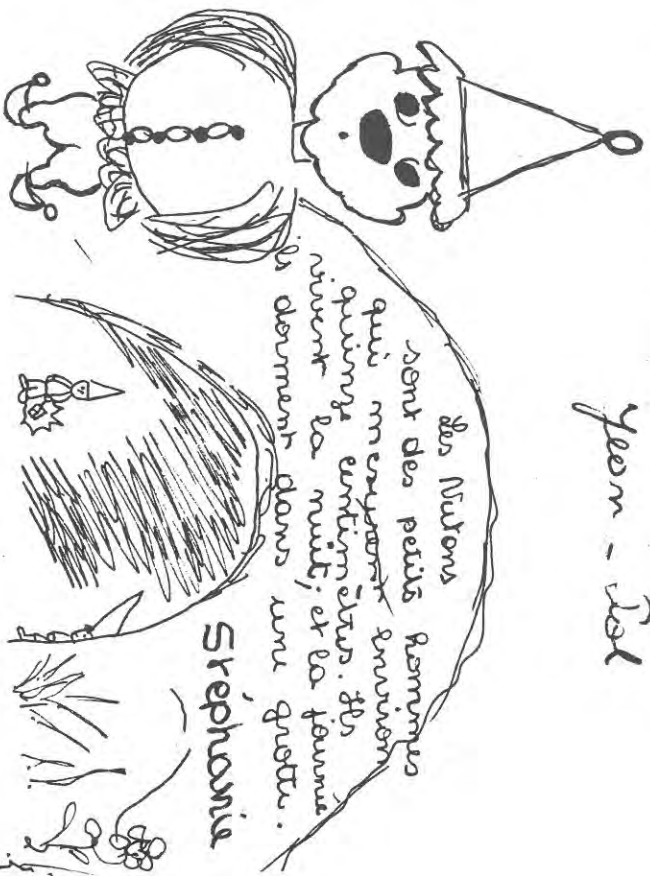 Jean - Pol
Les Nutons
sont des petits hommes
qui mesurent environ
quinze centimètres. Ils
vivent la nuit, et la journée
ils dorment dans une grotte.
Stéphanie